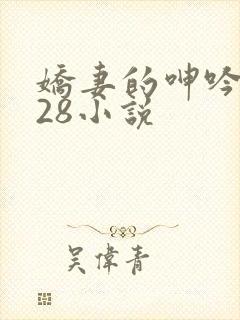 嬌妻的呻吟
28小說
吴偉青